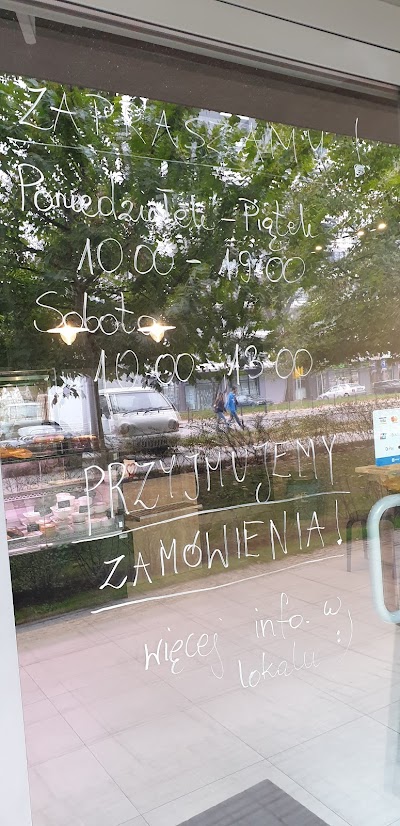 ZAPRASZAMY !
Poniedziałek - Piątek
10.00 - 19:00
Sobota
10.00 - 13:00
PRZYJMUJEMY
ZAMÓWIENIA!
więcej info. w
lokalu :)